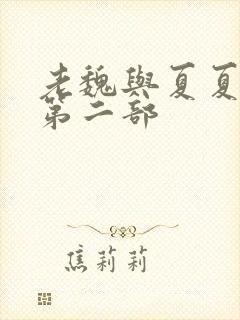 老魏與夏夏
第二部
焦莉莉